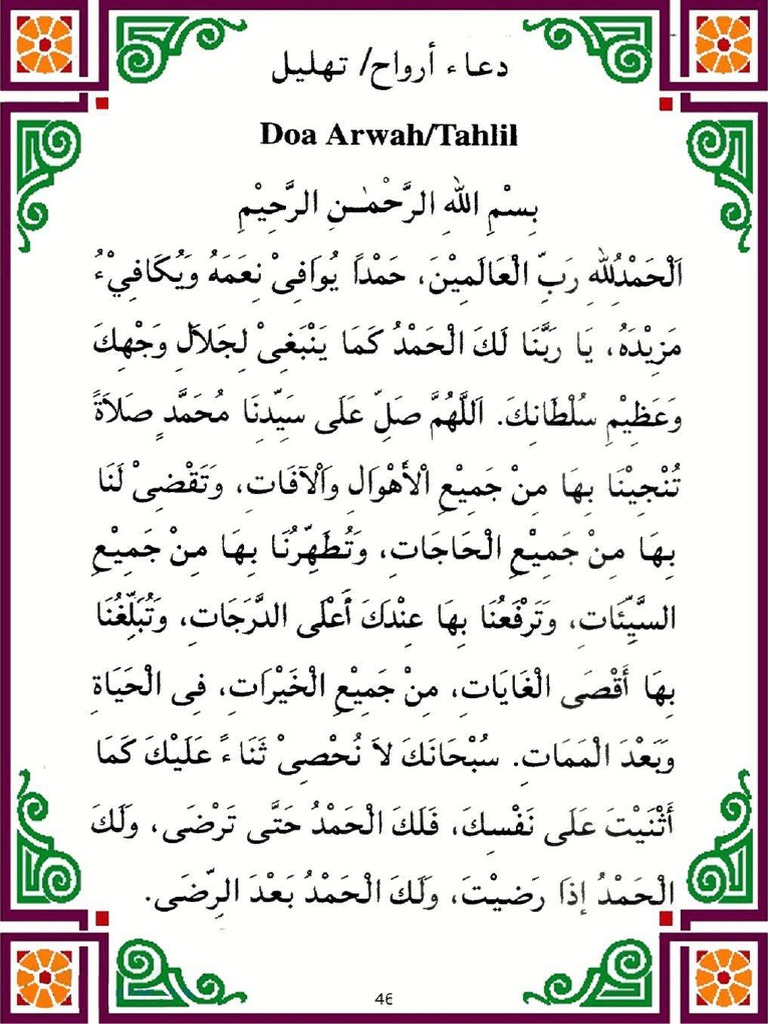 دعاء أرواح/ تهليل
Doa Arwah/Tahlil
بِسْمِ اللهِ الرَّحْمٰنِ الرَّحِيْمِ
اَلْحَمْدُلِلّٰهِ رَبِّ الْعَالَمِيْنَ، حَمْدًا يُوَافِىْ نِعَمَهُ وَيُكَافِيْءُ
مَزِيْدَهُ، يَا رَبَّنَا لَكَ الْحَمْدُ كَمَا يَنْبَغِىْ لِجَلاَلِ وَجْهِكَ
وَعَظِيْمِ سُلْطَانِكَ. اَللَّهُمَّ صَلِّ عَلَى سَيِّدِنَا مُحَمَّدٍ صَلاَةً
تُنْجِيْنَا بِهَا مِنْ جَمِيْعِ اْلأَهْوَالِ وَاْلآفَاتِ، وَتَقْضِىْ لَنَا
بِهَا مِنْ جَمِيْعِ الْحَاجَاتِ، وَتُطَهِّرُنَا بِهَا مِنْ جَمِيْعِ
السَّيِّئَاتِ، وَتَرْفَعُنَا بِهَا عِنْدَكَ أَعْلَى الدَّرَجَاتِ، وَتُبَلِّغُنَا
بِهَا أَقْصَى الْغَايَاتِ، مِنْ جَمِيْعِ الْخَيْرَاتِ، فِى الْحَيَاةِ
وَبَعْدَ الْمَمَاتِ. سُبْحَانَكَ لاَ نُحْصِىْ ثَنَاءً عَلَيْكَ كَمَا
أَثْنَيْتَ عَلَى نَفْسِكَ، فَلَكَ الْحَمْدُ حَتَّى تَرْضَى، وَلَكَ
الْحَمْدُ إِذَا رَضِيْتَ، وَلَكَ الْحَمْدُ بَعْدَ الرِّضَى.
46